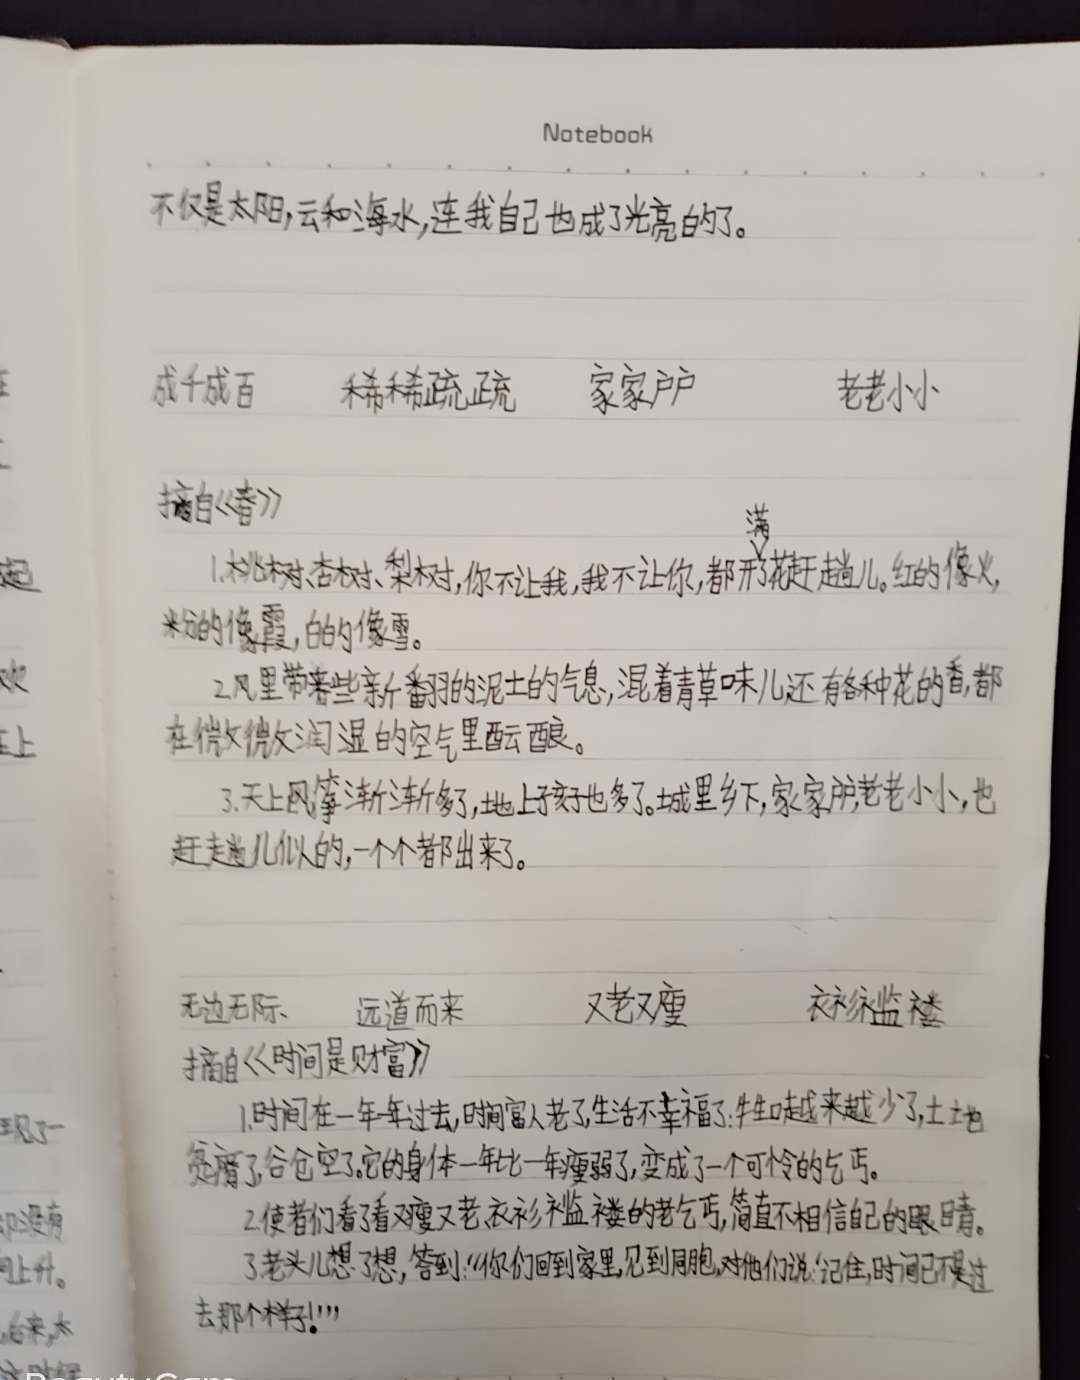 Notebook
不仅是太阳,云和海水,连我自己也成了光亮的了。
成千成百 稀稀疏疏 家家户户 老老小小
摘自《春》
满
1.桃树、杏树、梨树,你不让我,我不让你,都开了花赶趟儿。红的像火,
粉的像霞,白的像雪。
2.风里带来些新翻的泥土的气息,混着青草味儿还有各种花的香,都
在微微润湿的空气里酝酿。
3.天上风筝渐渐多了,地上孩子也多了。城里乡下,家家户户,老老小小,也
赶趟儿似的,一个个都出来了。
无边无际、 远道而来 又老又瘦 衣衫褴褛
摘自《时间是财富》
1.时间在一年年过去,时间富人老了,生活不幸福了:牲口越来越少了,土地
贫瘠了,谷仓空了。它的身体一年比一年瘦弱了,变成了一个可怜的乞丐。
2.使者们看了看又瘦又老、衣衫褴褛的老乞丐,简直不相信自己的眼睛。
3老头儿想了想,答到:“你们回到家里,见到同胞,对他们说:‘记住,时间已不是过
去那个样子!’”
起
欢
上
现了一
却没有
向上升。
后来,太
这时候
BeautyCam